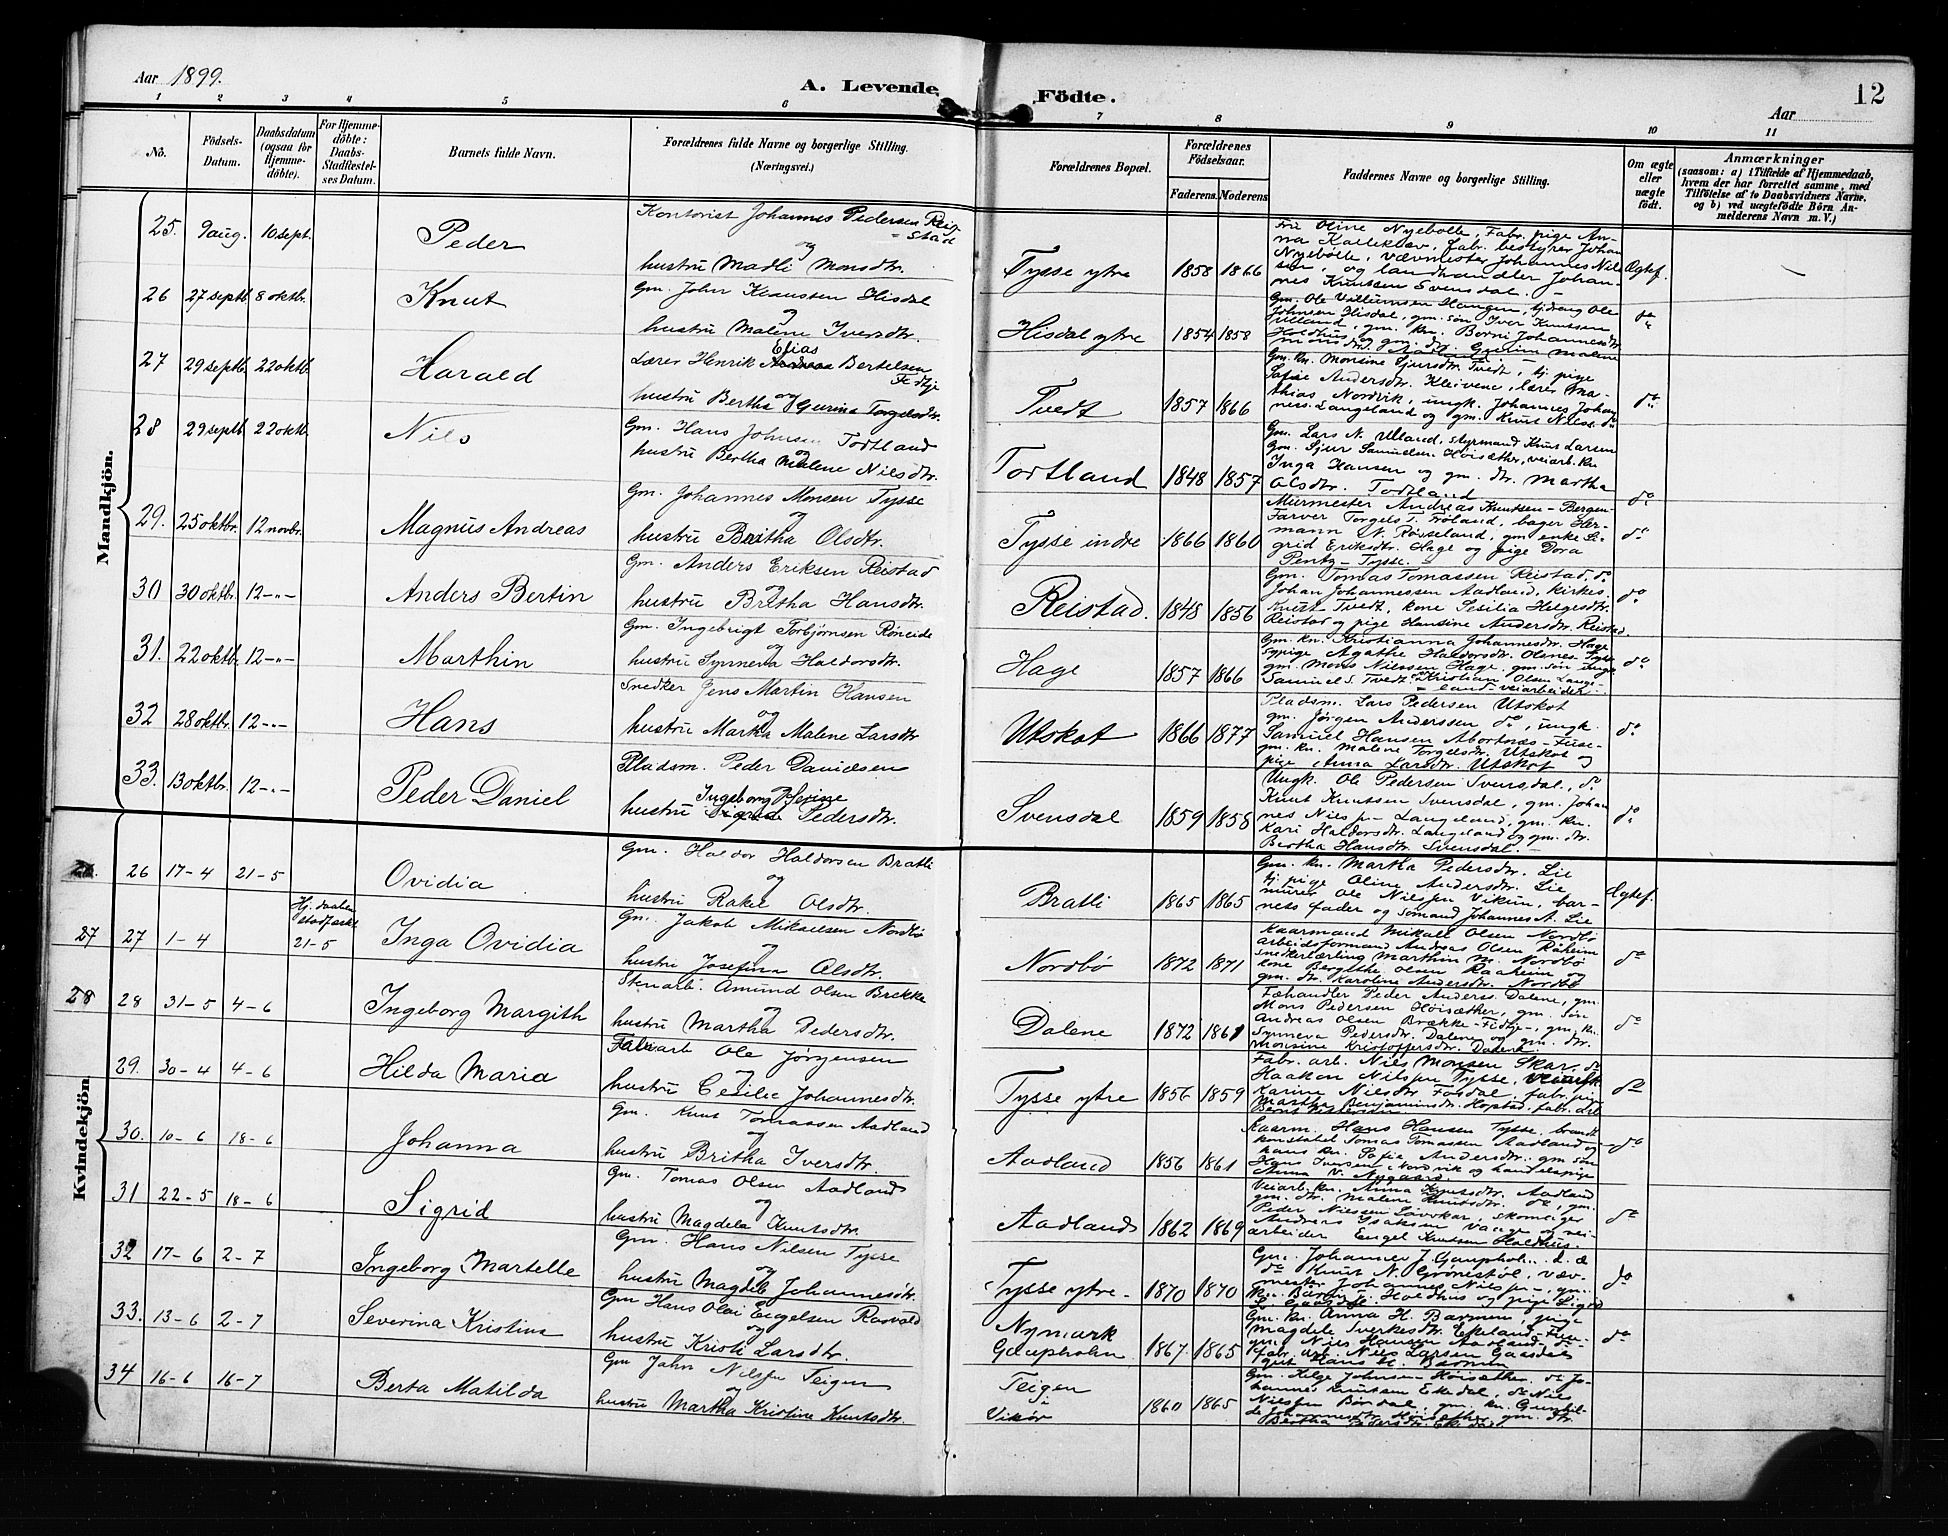 Aar 1899.
A. Levende Födte.
Aar
12
1 2 3 4 5 6 7 8 9 10 11
Nô.
Födsels-Datum.
Daabsdatum (ogsaa för Hjemmedöbte).
For Hjemmedöbte: Daabs-Stadfæstelses Datum.
Barnets fulde Navn.
Forældrenes fulde Navne og borgerlige Stilling. (Næringsvei.)
Forældrenes Bopæl.
Forældrenes Födselsaar.
Faderens. Moderens.
Faddernes Navne og borgerlige Stilling.
Om ægte eller uægte födt.
Anmærkninger
(saasom: a) i Tilfælde af Hjemmedaab, hvem der har forrettet samme, med Tilföielse af to Daabsvidners Navne, og b) ved uægtefödte Börn Anmelderens Navn m. V.)
Mandkjön.
25. 9 aug. 10 sept. Peder
Kontorist Johannes Pedersen Reistad
og
hustru Madli Monsdtr.
Tysse ytre 1858 1866
Fru Oline Nyebölle, Fabr. pige An-
na Kalleklev, fabr. bestyrer Johan
Nyebölle, vævmester Johannes Nil-
sen, og landhandler Johan-
nes Knutsen Svensdal.
Ægtef.
26 27 septb. 8 oktbr. Knut
Gm. John Knutsen Hisdal
og
hustru Malene Iversdtr.
Hisdal ytre 1854 1858
Gm. Ole Villumsen Haugen, tj.dreng Ole
Johnsen Hisdal, gm. søn Iver Knutsen
do
27 29 septb. 22 oktb. Harald
Lærer Henrik Elias Bertelsen Fedtje
og
hustru Bertha Gurina Torgelsdtr.
Tvedt 1857 1866
Gm. kn. Monsine Sjursdtr. Tvedt, tj. pige
Sofie Andersdtr. Kleivene, lærer Ma-
thias Nordvik, ungk. Johannes Johan-
ness. Langeland og gm. Knut Nilss. do
do
28 29 septb. 22 oktb. Nils
Gm. Hans Johnsen Todtland
og
hustru Bertha Malene Nilsdtr.
Tortland 1848 1857
Gm. Lars N. Ulland, styrmand Knut Larsen
Gm. Sjur Samuelsen Höisæther, veiarb. kn.
Inga Hansen og gm. dr. Martha
Olsdtr. Todtland
do
29. 25 oktbr. 12 novbr. Magnus Andreas
Gm. Johannes Monsen Tysse
og
hustru Britha Olsdtr.
Tysse indre 1866 1860
Murmester Andreas Knutsen - Bergen
Farver Torgels T. Fröland, bager Her-
mann N. Røvseland, gm. enke Si-
grid Eriksdtr. Hage og pige Dora
Pentz - Tysse.
do
30 30 oktbr. 12 -"- Anders Bertin
Gm. Anders Eriksen Reistad
og
hustru Britha Hansdtr.
Reistad. 1848 1856
Gm. Tomas Tomassen Reistad, do
Johan Johannessen Aadland, kirkes.
Knut Tvedt, kone Sesilia Helgesdtr.
Reistad og pige Hansine Andersdtr. Reistad.
do
31. 22 oktbr. 12 -"- Marthin
Gm. Ingebrigt Torbjörnsen Röneide
og
hustru Synneva Haldorsdtr.
Hage 1857 1866
Gm. kn. Kristianna Johannesdtr. Hage
Sypige Agathe Haldorsdtr. Olsnes - Tysse
gm. Mons Nilssen Hage, gm. søn
Samuel S. Tvedt og Kristian Olsen Lange-
land - veiarbeider.
do
32 28 oktbr. 12 -"- Hans
Snedker Jens Martin Hansen
og
hustru Martha Malene Larsdtr
Utskot 1866 1877
Pladsm. Lars Pedersen Utskot
gm. Jörgen Anderssen do, ungk.
Samuel Hansen Abortnæs - Fuse -
gm. kn. Malene Torgelsdtr. Utskot og
pige Anna Larsdtr. Utskot
do
33. 13 oktbr. 12 -"- Peder Daniel
Pladsm. Peder Danielsen
hustru Ingeborg Pedersdtr.
Svensdal 1859 1858
Ungk. Ole Pedersen Svensdal, do
Knut Knutsen Svensdal, gm. Johan-
nes Nilssen - Langeland, gm. kn.
Kari Haldorsdtr. Langeland og gm. dtr.
Bertha Hansdtr. Svensdal.
do
Kvindekjön
26 17-4 21-5 Ovidia
Gm. Haldor Haldorsen Bratli
og
hustru Rakel Olsdtr.
Bratli 1865 1865
Gm. kn. Martha Pedersdtr. Lie
tj. pige Oline Andersdtr. Lie
murer Ole Nilssen Vikum, bar-
nets fader og sömand Johannes A. Lie
Ægtef.
27 27 1-4 Hj. daaben stadfæstet 21-5 Inga Ovidia
Gm. Jakob Mikkelsen Nordbö
og
hustru Josefina Olsdtr.
Nordbø 1872 1871
Kaarmand Mikall Olsen Nordbö
arbeidsformand Andreas Olsen Raaheim
snedkerlærling Marthin M. Nordbö
kone Bergithe Olsen Raaheim og
gm. dtr. Karoline Andersdtr. Nordbø
do
28 28 31-5 4-6 Ingeborg Margith
Stenarb. Amund Olsen Brekke
og
hustru Martha Pedersdtr.
Dalene 1872 1861
Fæhandler Peder Anderss. Dalene, gm.
Mons Pedersen Höisæther, gm. søn
Andreas Olsen Brække - Fidtje -, gm. kn.
Synneva Pedersdtr. Dalene og gm. dtr.
Monsine Kristoffersdtr. Dalene
do
29. 30-4 4-6 Hilda Maria
Fabr. arb. Ole Jörgensen
og
hustru Cesilie Johannesdtr.
Tysse ytre 1856 1859
Fabr. arb. Nils Monsen Skar, do
Haaken Nilssen Tysse,
Karine Nilsdtr. Fosdal, fabr. pige
Martha Benjaminsdtr. Hopstad, fabr. arb.
do
30. 10-6 18-6 Johanna
Gm. Knut Tomassen Aadland
og
hustru Britha Iversdtr.
Aadland 1856 1861
Kaarm. Hans Hansen Tysse, brandt-
konstabel Tomas Tomassen Aadland og
hans kn. Sofie Andersdtr. gm. søn
Hans Iversen Nordvik og handelspige
Anna V. Nygaard.
do
31 22-5 18-6 Sigrid
Gm. Tomas Olsen Aadland
og
hustru Magdela Knutsdtr.
Aadland 1862 1869
Veiarb. kn. Anna Knutsdtr. Aadland
gm. dtr. Malene Knutsdtr. do, gm.
Peder Nilssen Løvskar, skomager
Andreas Isaksen Vaage og vei-
arbeider Engel Knutsen Holdhus.
do
32 17-6 2-7 Ingeborg Martelle
Gm. Hans Nilsen Tysse
og
hustru Magdela Johannesdtr.
Tysse ytre - 1870 1870
do Knut N. Grönestöl, væv-
mester Johannes Nilssen -, gm.
do
33. 13-6 2-7 Severina Kristina
Gm Hans Olai Engelsen Rosvold
og
hustru Kristi Larsdtr.
Nymark
Gaupholm 1867 1865
Gm. kn. Anna H. Barmen, pige
Magdele Sverkesdtr. Ekeland - Fuse -
do
34 16-6 16-7 Berta Matilda
Gm John Nilssen Teigen
og
hustru Martha Kristine Knutsdtr.
Teigen
i
Vikør 1860 1865
Gm. Helge Johnsen Höisæther, do Jo-
hannes Knutsen Ekedal, do Nils
Nilssen Børdal, gm. kn. Gunhil-